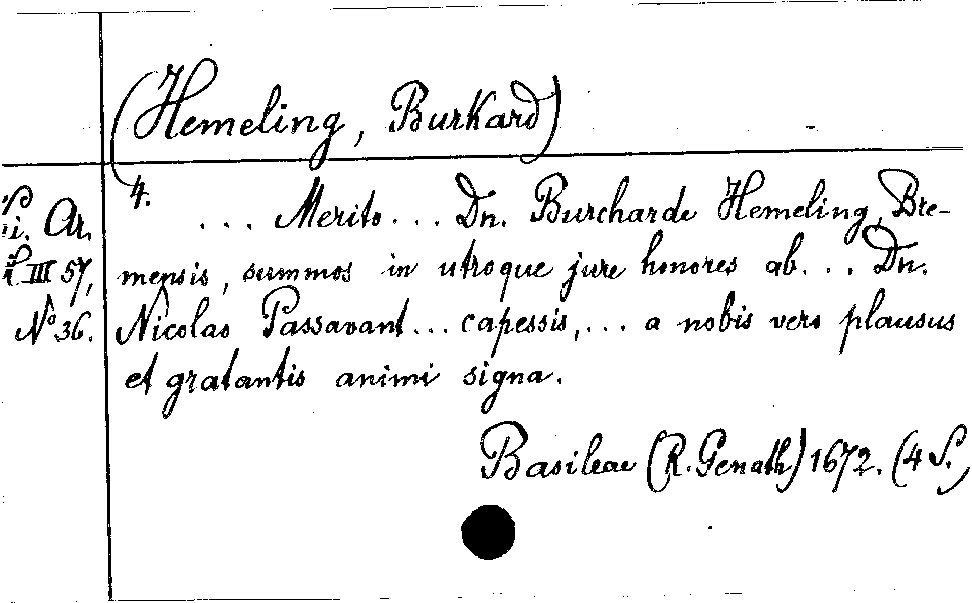 (Hemeling, Burkard)
Ar.
III 57,
No 36.
4.
... Merito... Dn. Burcharde Hemeling, Bre-
mensis, summos in utroque jure honores ab... Dn.
Nicolao Passavant... capessis,... a nobis vero plausus
et gratantis animi signa.
Basileae (R. Genath) 1672. (4 S.)